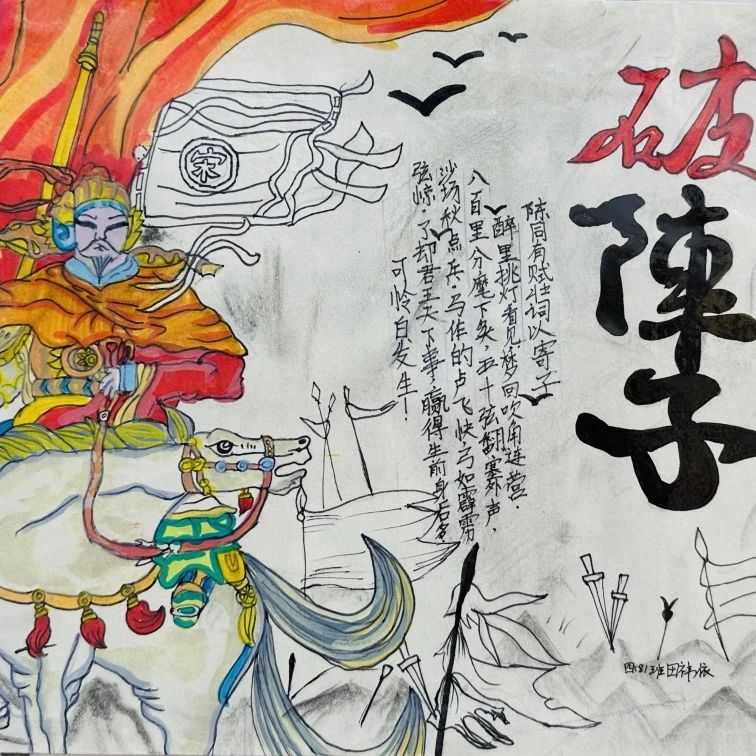 破
陳
子
宋
陈同有赋壮词以寄子
醉里挑灯看见,梦回吹角连营.
八百里分麾下炙,五十弦翻塞外声,
沙场秋点兵.马作的卢飞快,弓如霹雳
弦惊.了却君王天下事,赢得生前身后名
可怜白发生!
四(8)班田祎依